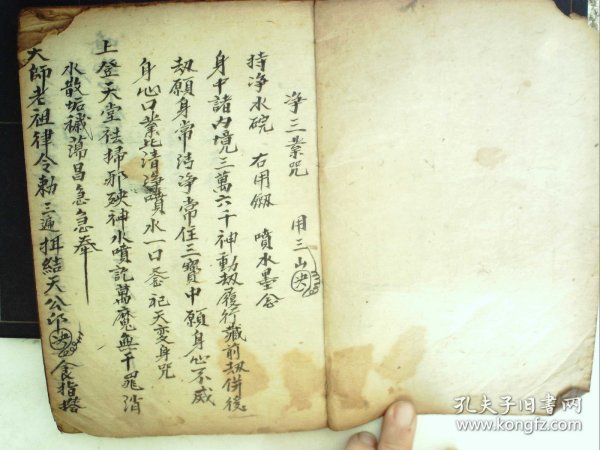 淨三業咒　用三山決
持净水碗　右用劔　噴水墨念
身中諸内境三萬六千神動刼履行藏前刼併後
刼願身常清净常住三寳中願身心不威
身心口業比清净噴水一口　祀天变身咒
上登天堂祛掃邪殃神水噴訖萬魔無干罪消
水散垢穢蕩昌急急奉
大師老祖律令勅三遍抯結天公卬　食指搭
孔夫子旧书网
www.kongfz.com